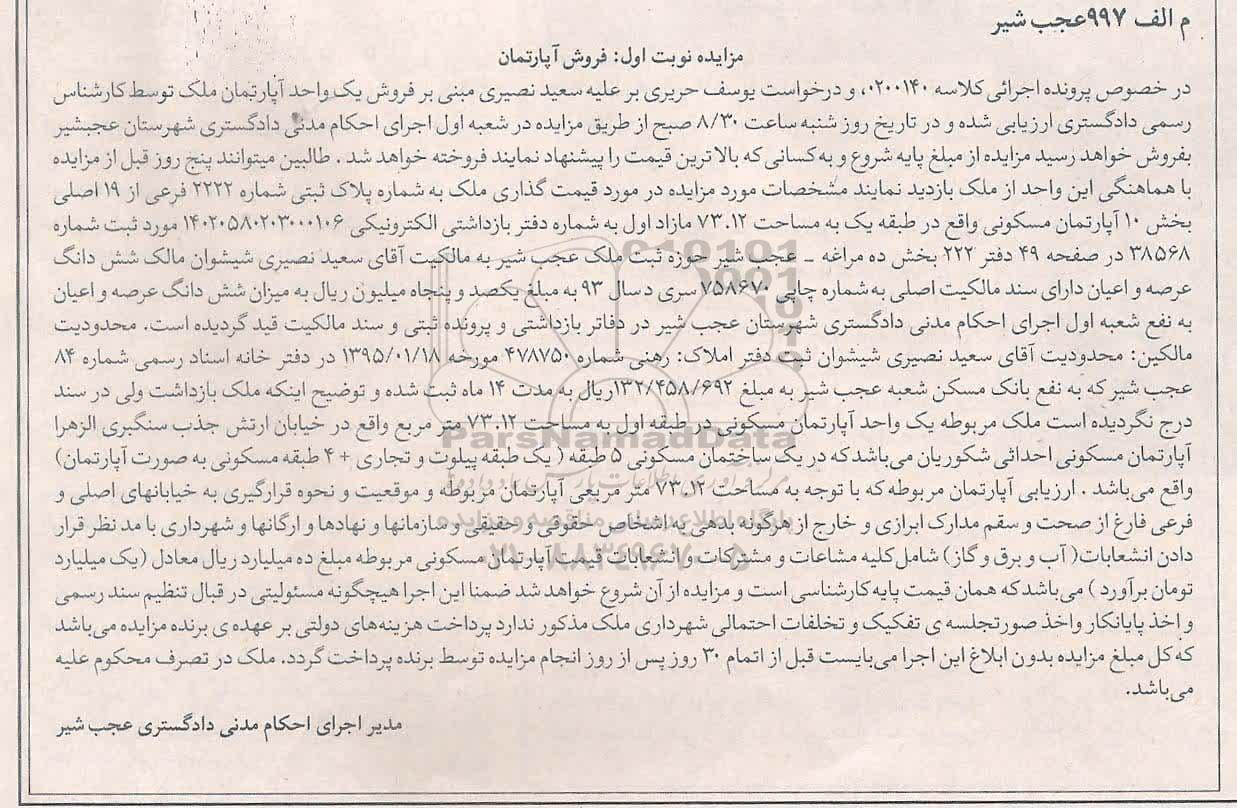 م الف ۹۹۷عجب شیر
مزایده نوبت اول: فروش آپارتمان
در خصوص پرونده اجرائی کلاسه ۰۲۰۰۱۴۰، و درخواست یوسف حریری بر علیه سعید نصیری مبنی بر فروش یک واحد آپارتمان ملک توسط کارشناس
رسمی دادگستری ارزیابی شده و در تاریخ روز شنبه ساعت ۸/۳۰ صبح از طریق مزایده در شعبه اول اجرای احکام مدنی دادگستری شهرستان عجبشیر
بفروش خواهد رسید مزایده از مبلغ پایه شروع و به کسانی که بالاترین قیمت را پیشنهاد نمایند فروخته خواهد شد . طالبین میتوانند پنج روز قبل از مزایده
با هماهنگی این واحد از ملک بازدید نمایند مشخصات مورد مزایده در مورد قیمت گذاری ملک به شماره پلاک ثبتی شماره ۲۲۲۲ فرعی از ۱۹ اصلی
بخش ۱۰ آپارتمان مسکونی واقع در طبقه یک به مساحت ۷۳.۱۲ مازاد اول به شماره دفتر بازداشتی الکترونیکی ۱۴۰۲۰۵۸۰۲۰۳۰۰۰۱۰۶ مورد ثبت شماره
۳۸۵۶۸ در صفحه ۴۹ دفتر ۲۲۲ بخش ده مراغه - عجب شیر حوزه ثبت ملک عجب شیر به مالکیت آقای سعید نصیری شیشوان مالک شش دانگ
عرصه و اعیان دارای سند مالکیت اصلی به شماره چاپی ۷۵۸۶۷۰ سری د سال ۹۳ به مبلغ یکصد و پنجاه میلیون ریال به میزان شش دانگ عرصه و اعیان
به نفع شعبه اول اجرای احکام مدنی دادگستری شهرستان عجب شیر در دفاتر بازداشتی و پرونده ثبتی و سند مالکیت قید گردیده است. محدودیت
مالکین: محدودیت آقای سعید نصیری شیشوان ثبت دفتر املاک: رهنی شماره ۴۷۸۷۵۰ مورخه ۱۳۹۵/۰۱/۱۸ در دفتر خانه اسناد رسمی شماره ۸۴
عجب شیر که به نفع بانک مسکن شعبه عجب شیر به مبلغ ۱۳۲/۴۵۸/۶۹۲ریال به مدت ۱۴ ماه ثبت شده و توضیح اینکه ملک بازداشت ولی در سند
درج نگردیده است ملک مربوطه یک واحد آپارتمان مسکونی در طبقه اول به مساحت ۷۳.۱۲ متر مربع واقع در خیابان ارتش جذب سنگبری الزهرا
آپارتمان مسکونی احداثی شکوریان می‌باشد که در یک ساختمان مسکونی ۵ طبقه ( یک طبقه پیلوت و تجاری + ۴ طبقه مسکونی به صورت آپارتمان)
واقع می‌باشد . ارزیابی آپارتمان مربوطه که با توجه به مساحت ۷۳.۱۲ متر مربعی آپارتمان مربوطه و موقعیت و نحوه قرارگیری به خیابانهای اصلی و
فرعی فارغ از صحت و سقم مدارک ابرازی و خارج از هرگونه بدهی به اشخاص حقوقی و حقیقی و سازمانها و نهادها و ارگانها و شهرداری با مد نظر قرار
دادن انشعابات( آب و برق و گاز) شامل کلیه مشاعات و مشترکات و انشعابات قیمت آپارتمان مسکونی مربوطه مبلغ ده میلیارد ریال معادل (یک میلیارد
تومان برآورد ) می‌باشد که همان قیمت پایه کارشناسی است و مزایده از آن شروع خواهد شد ضمنا این اجرا هیچگونه مسئولیتی در قبال تنظیم سند رسمی
و اخذ پایانکار واخذ صورتجلسه ی تفکیک و تخلفات احتمالی شهرداری ملک مذکور ندارد پرداخت هزینه‌های دولتی بر عهده ی برنده مزایده می‌باشد
که کل مبلغ مزایده بدون ابلاغ این اجرا می‌بایست قبل از اتمام ۳۰ روز پس از روز انجام مزایده توسط برنده پرداخت گردد. ملک در تصرف محکوم علیه
می‌باشد.
مدیر اجرای احکام مدنی دادگستری عجب شیر
ParsNamadData